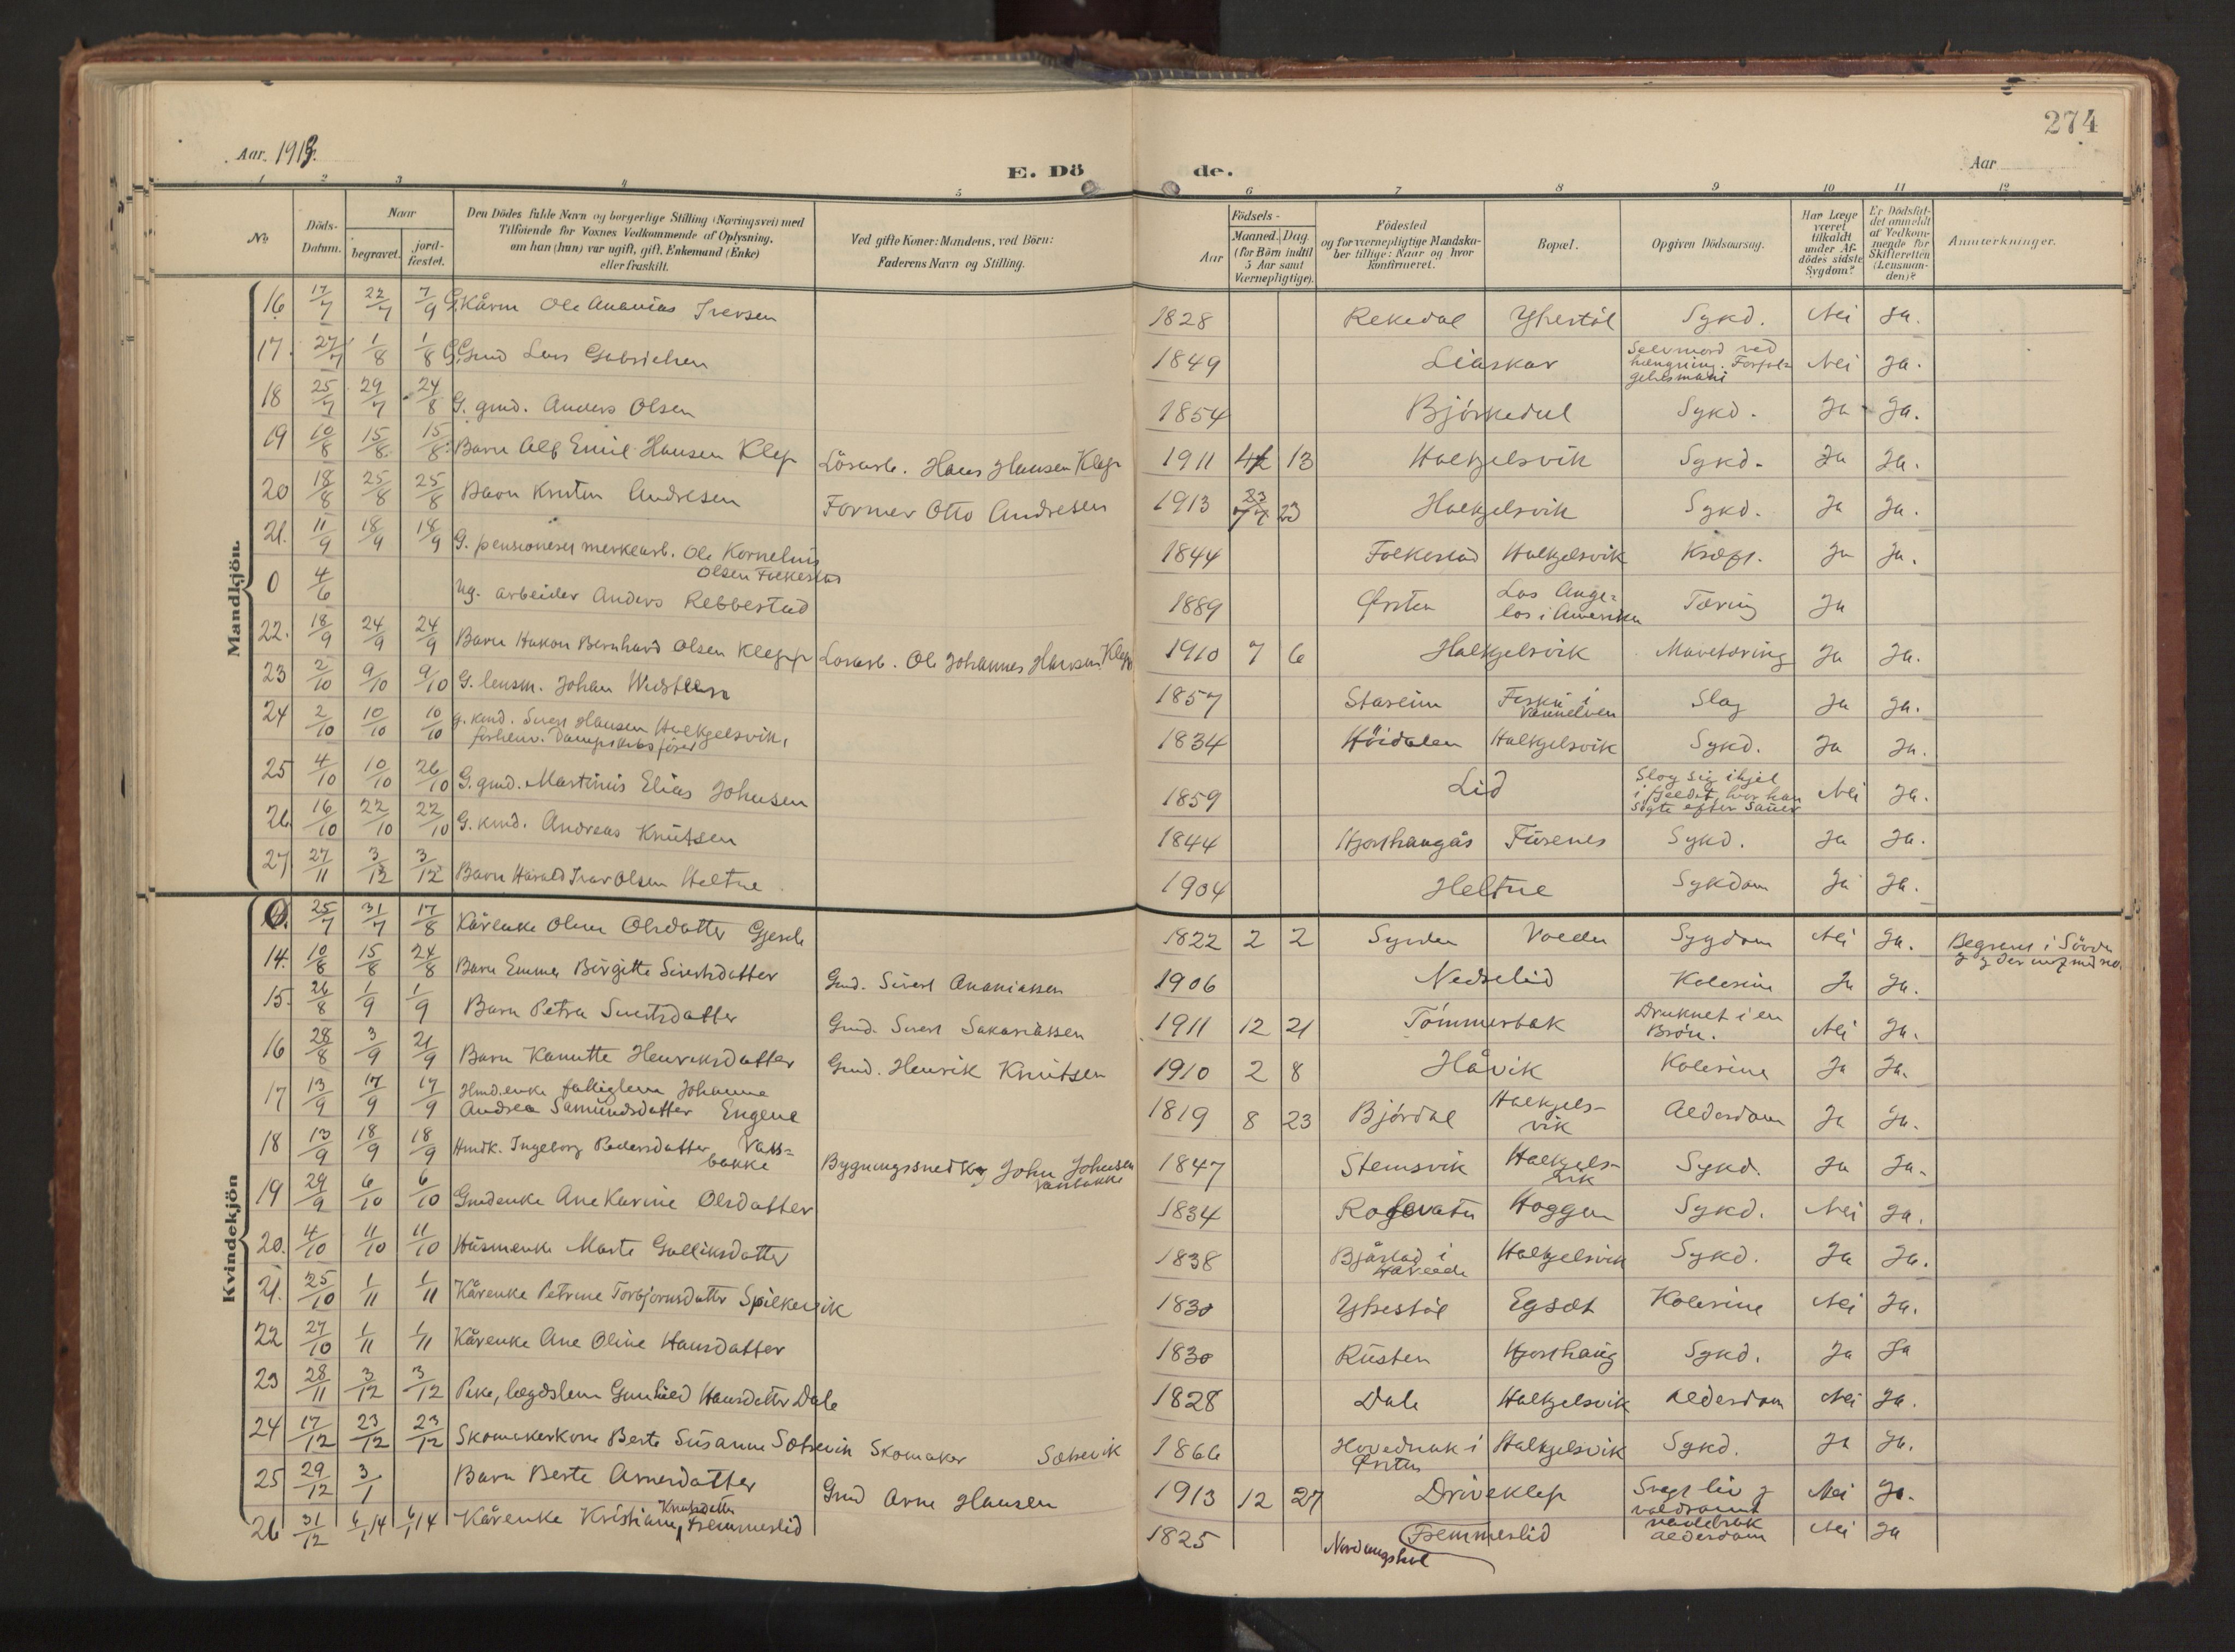 274
Aar 1913.
E. Döde.
Aar
1 2 3 4 5 6 7 8 9 10 11 12
No
Döds-Datum.
Naar
begravet.
jord-fæstet.
Den Dödes fulde Navn og borgerlige Stilling (Næringsvei) med
Tilföiende for Voxnes Vedkommende af Oplysning,
om han (hun) var ugift, gift, Enkemand (Enke)
eller fraskilt.
Ved gifte Koner: Mandens, ved Börn:
Faderens Navn og Stilling.
Födsels-
Aar
Maaned. Dag.
(for Börn indtil
5 Aar samt
Værnepligtige).
Födested
og for værnepligtige Mandska-
ber tillige: Naar og hvor
konfirmeret.
Bopæl.
Opgiven Dödsaarsag.
Har Læge
været
tilkaldt
under Af-
dödes sidste
Sygdom?
Er Dödsfal-
det anmeldt
af Vedkom-
mende for
Skifteretten
(Lensman-
den)?
Anmærkninger.
Mandkjön.
16 17/7 22/7 7/9 G. Kårm Ole Ananias Iversen 1828 Rekedal Yhestöl Sykd. Nei Ja.
17. 27/7 1/8 1/8 G. Gmd Lars Gabrielsen 1849 Liaskar Selvmord ved
hængning. Forføl-
gelsesmani Nei Ja.
18 25/7 29/7 24/8 G. gmd. Anders Olsen 1854 Björkedal Sykd. Ja Ja.
19 10/8 15/8 15/8 Barn Alf Emil Hansen Klep Lösarb. Hans Hansen Klep 1911 4 13 Halkjelsvik Sykd. Ja Ja.
20 18/8 25/8 25/8 Barn Knuten Andresen Former Otto Andresen 1913 7 23 Halkjelsvik Sykd. Ja Ja.
21. 11/9 18/9 18/9 G. pensioneret merkearb. Ole Kornelius
Olsen Folkestad 1844 Folkestad Halkjelsvik Kræft. Ja Ja.
0 4/6 Ug. arbeider Anders Rebbestad 1889 Örsten Los Ange-
los i Amerika Tæring Ja
22. 18/9 24/9 24/9 Barn Hakon Bernhard Olsen Klepp Lösarb. Ole Johannes Hansen Klepp 1910 7 6 Halkjelsvik Mavetæring Ja Ja.
23 2/10 9/10 9/10 G. lensm. Johan 1857 Stareim Fiskå i
Vannelven Slag Ja Ja.
24 2/10 10/10 10/10 G. kmd. Sivert Hansen Halkjelsvik,
forhenv. Dampskibsförer 1834 Höidalen Halkjelsvik Sykd. Ja Ja.
25 4/10 10/10 26/10 G. gmd. Martinus Elias Johnsen 1859 Lid Slog sig ihjel
i fjeldet, hvor han
sögte efter sauer Nei Ja.
26 16/10 22/10 22/10 G. kmd. Andreas Knutsen 1844 Hjorthaugås Furenes Sykd. Ja Ja.
27 27/11 3/12 3/12 Barn Harald Ivar Olsen Heltne 1904 Heltne Sykdom Ja Ja.
Kvindekjön
0. 25/7 31/7 17/8 Kårenke Oline Olsdatter 1822 2 2 Syvden Voelden Sygdom Nei Ja. Begravet i Sövde
14. 10/8 15/8 24/8 Barn Emma Birgitte Sivertsdatter Gmd. Sivert Ananiassen 1906 Nedrelid Kolerine Ja Ja.
15. 26/8 1/9 1/9 Barn Petra Sivertsdatter Gmd. Sivert Sakariassen 1911 12 21 Tömmerbak Druknet i en
Brön. Nei Ja.
16 28/8 3/9 21/9 Barn Kanutte Henriksdatter Gmd. Henrik Knutsen 1910 2 8 Håvik Kolerine Ja Ja.
17 13/9 17/9 17/9 Hmd.enke fattiglem Johanne
Andrea Samundsdatter Engene 1819 8 23 Björdal Halkjels-
vik Alderdom Ja Ja.
18 13/9 18/9 18/9 Hmdk. Ingeborg Pedersdatter Vass-
bakke Bygningssnedker John Johnsen
Vassbakke 1847 Stemsvik Halkjels-
vik Sykd. Ja Ja.
19 29/9 6/10 6/10 Gmdenke Ane Karine Olsdatter 1834 Hoggen Sykd. Nei Ja.
20. 4/10 11/10 11/10 Husmenke Marte Gulliksdatter 1838 Bjåstad i
Halkjelsvik Sykd. Ja Ja.
21. 25/10 1/11 1/11 Kårenke Petrine Torbjornsdatter Spilkevik 1830 Yhestöl Egset Kolerine Nei Ja.
22 27/10 1/11 1/11 Kårenke Ane Oline Hansdatter 1830 Rusten Hjorthaug Sykd. Ja Ja
23 28/11 3/12 3/12 Pike, lægdslem Gunhild Hansdatter Dale 1828 Dale Halkjelsvik Alderdom Nei Ja.
24 17/12 23/12 23/12 Skomakerkone Berte Susanne Sætrevik Skomaker Sætrevik 1866 Hovednak i
Örsten Halkjelsvik Sykd. Ja Ja.
25 29/12 3/1 Barn Berte Arnesdatter Gmd Arne Hansen 1913 12 27 Driveklep Svagt liv og
voldsomt
navlebrok Nei Ja.
26 31/12 6/1 14 6/1 14 Kårenke Kristiane Knutsdatter Fremmerlid 1825 Nordangshol Fremmerlid Alderdom Nei Ja